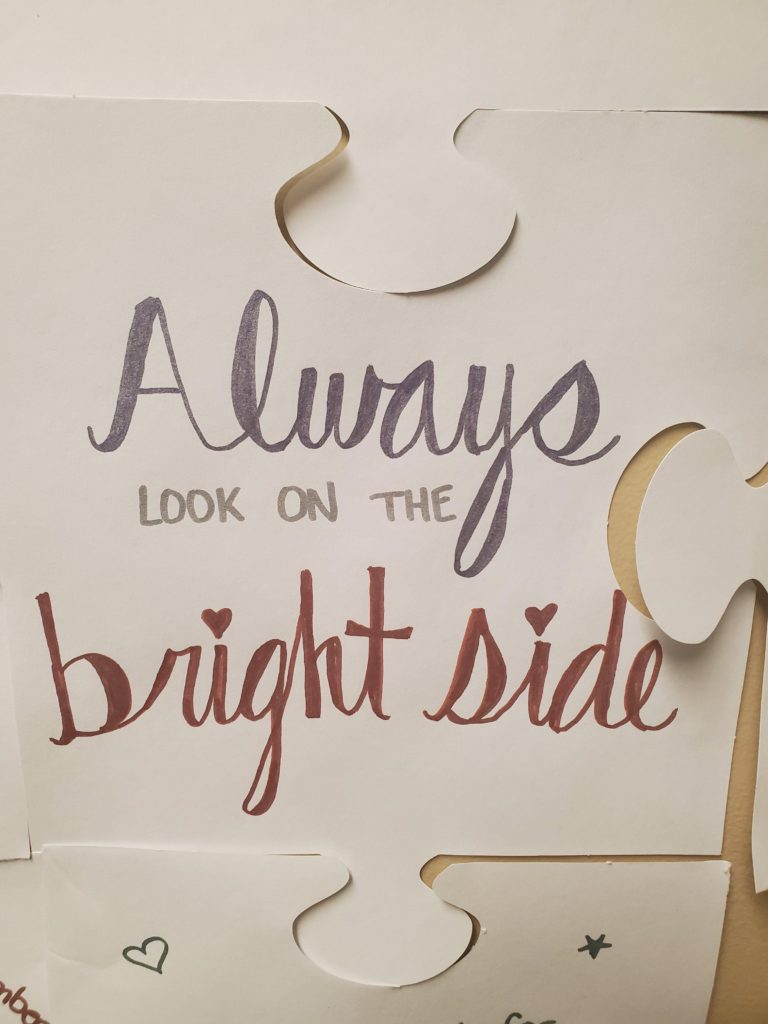 Always
LOOK ON THE
bright side